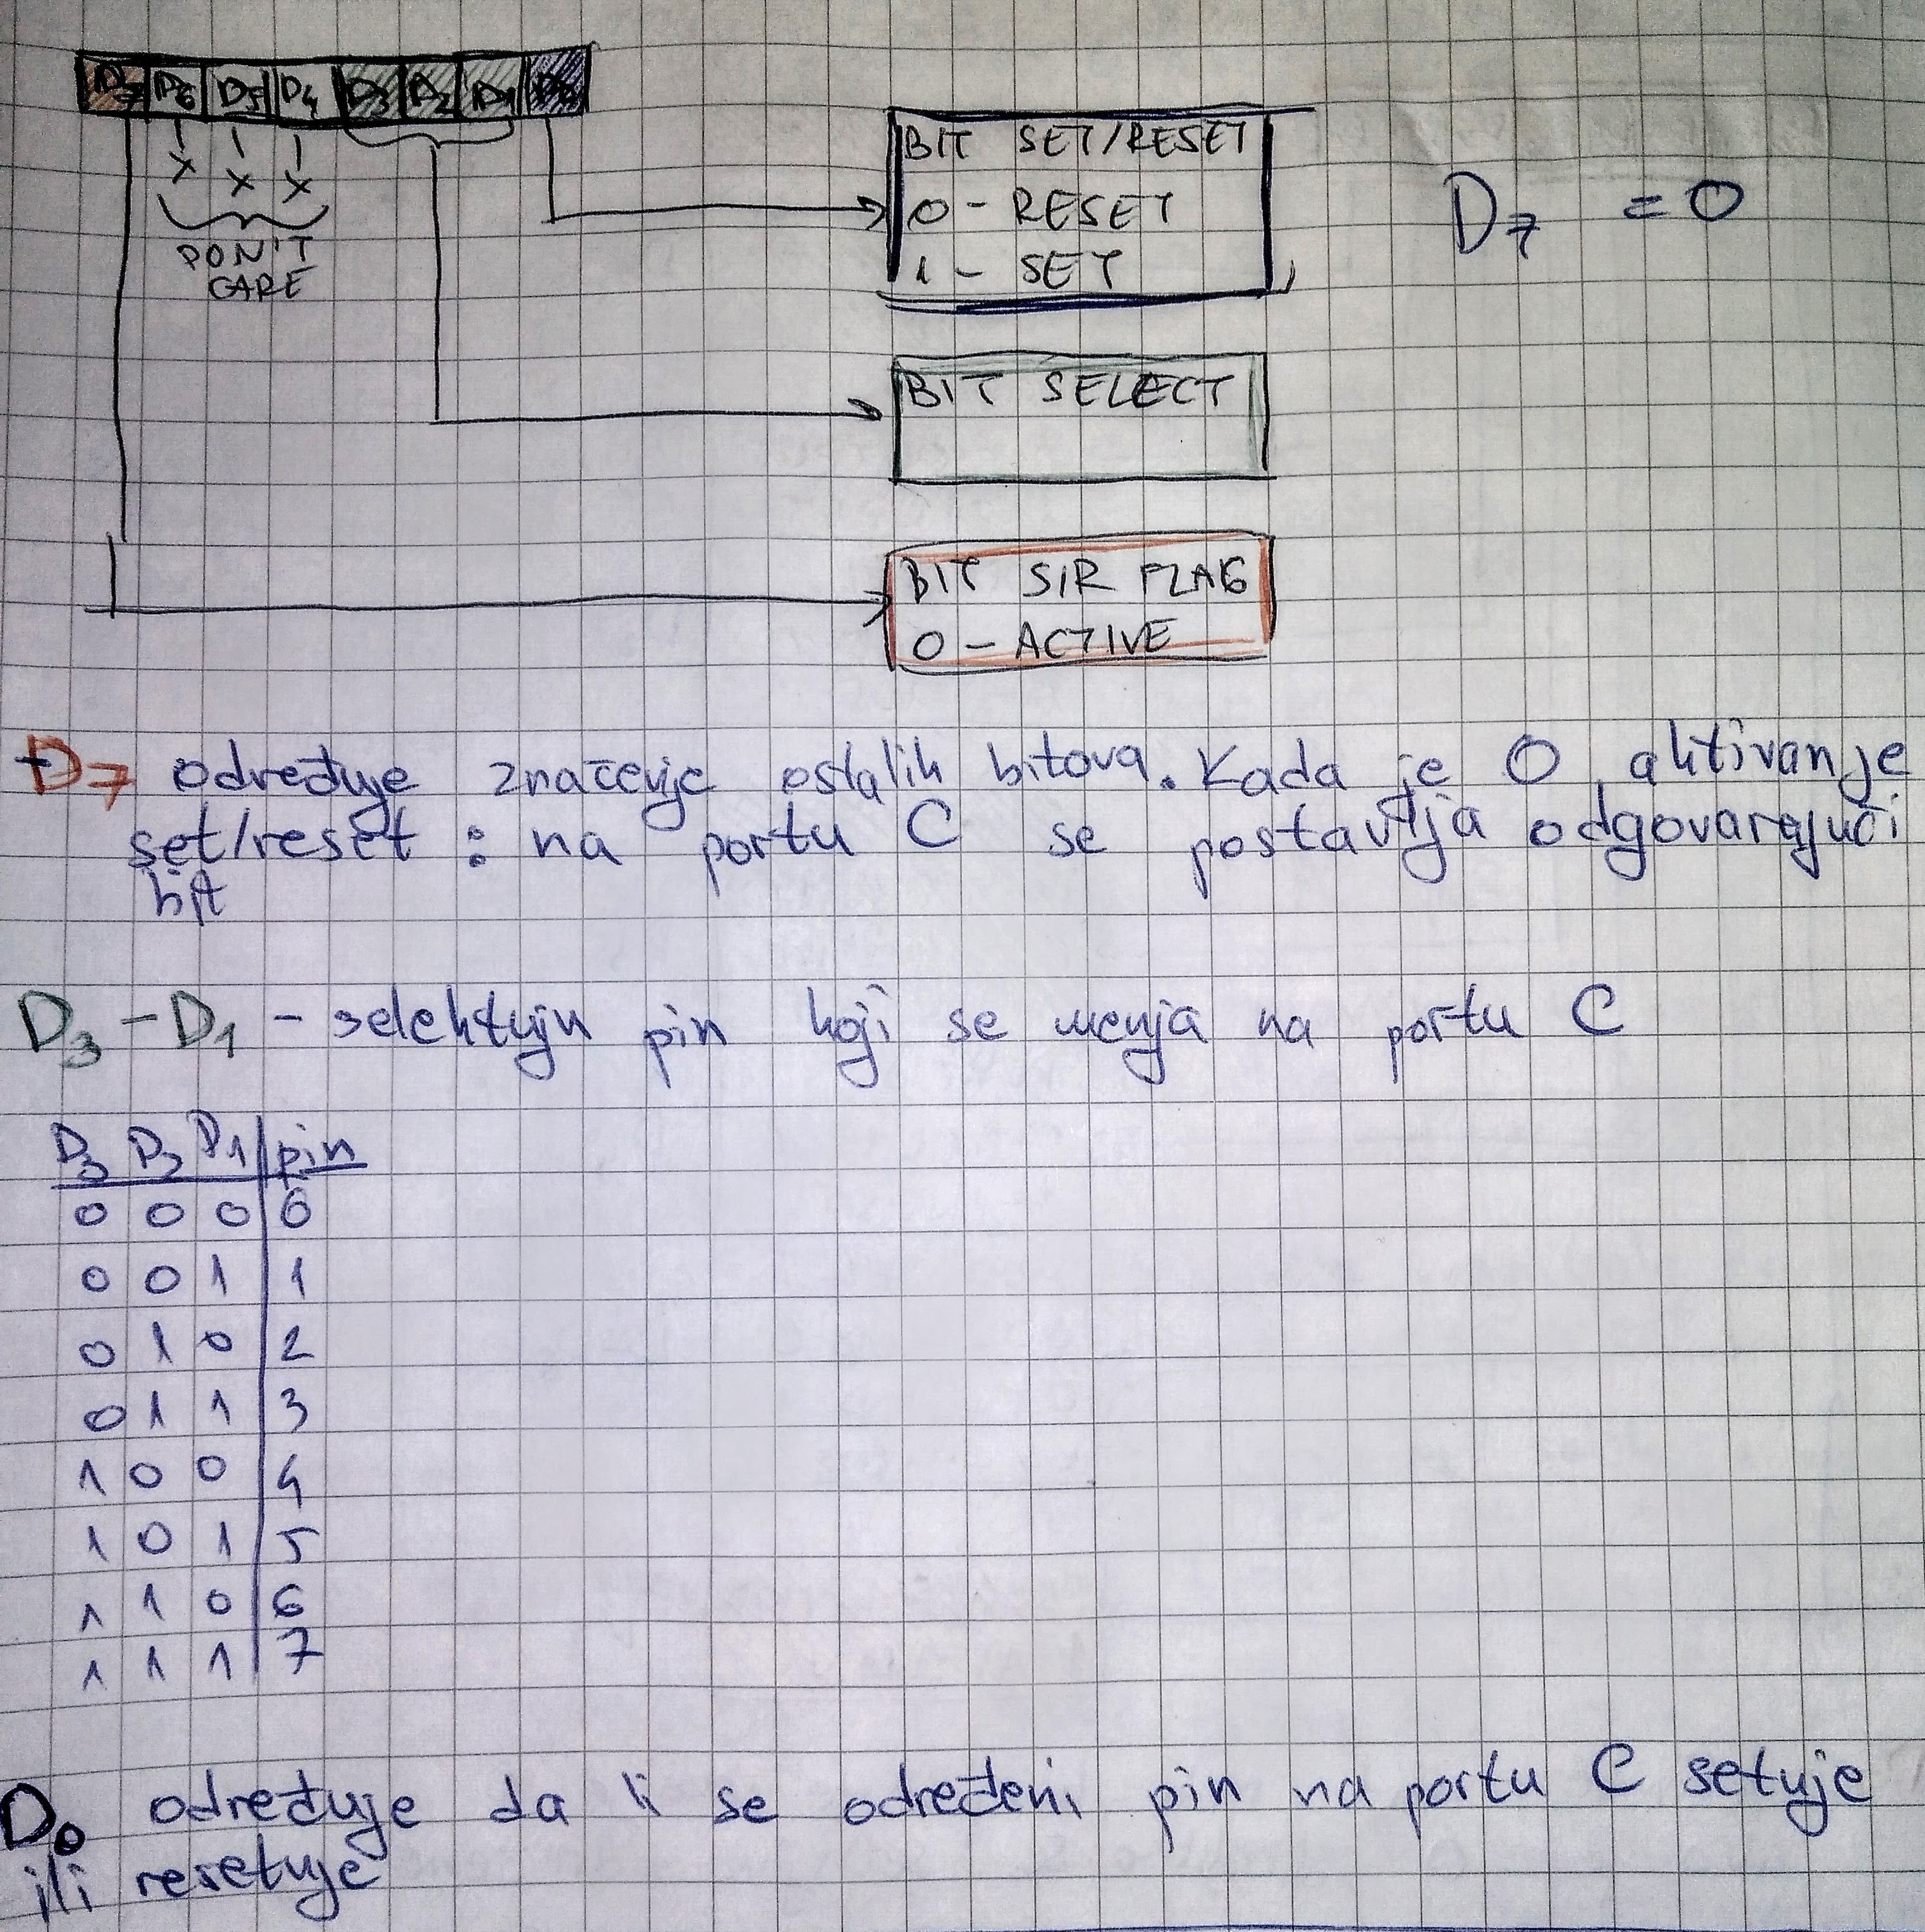 D7 D6 D5 D4 D3 D2 D1 D0
X X X
DON'T
CARE
BIT SET/RESET
0 - RESET
1 - SET
D7 = 0
BIT SELECT
BIT S/R FLAG
0 - ACTIVE
D7 određuje značenje ostalih bitova. Kada je 0 aktivan je
set/reset : na portu C se postavlja odgovarajući
bit
D3 - D1 - selektuju pin koji se menja na portu C
D3 D2 D1 | pin
0 0 0 | 0
0 0 1 | 1
0 1 0 | 2
0 1 1 | 3
1 0 0 | 4
1 0 1 | 5
1 1 0 | 6
1 1 1 | 7
D0 određuje da li se određeni pin na portu C setuje
ili resetuje